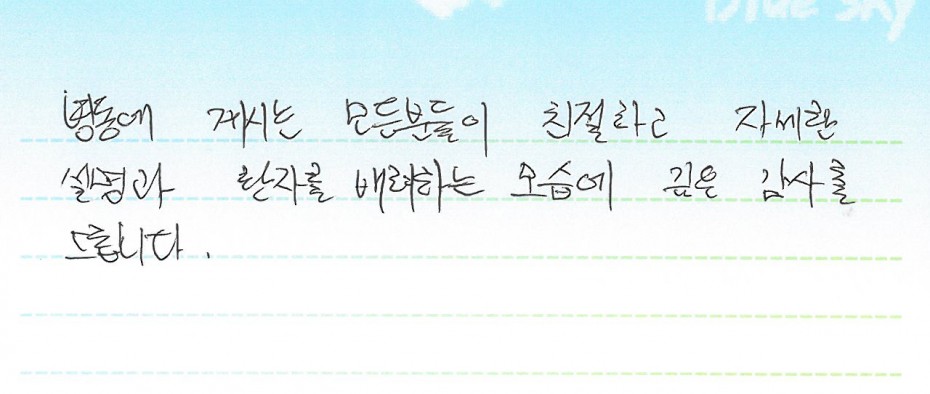 Blue Sky
병동에 계시는 모든분들이 친절하고 자세한
설명과 환자를 배려하는 모습에 깊은 감사를
드립니다.